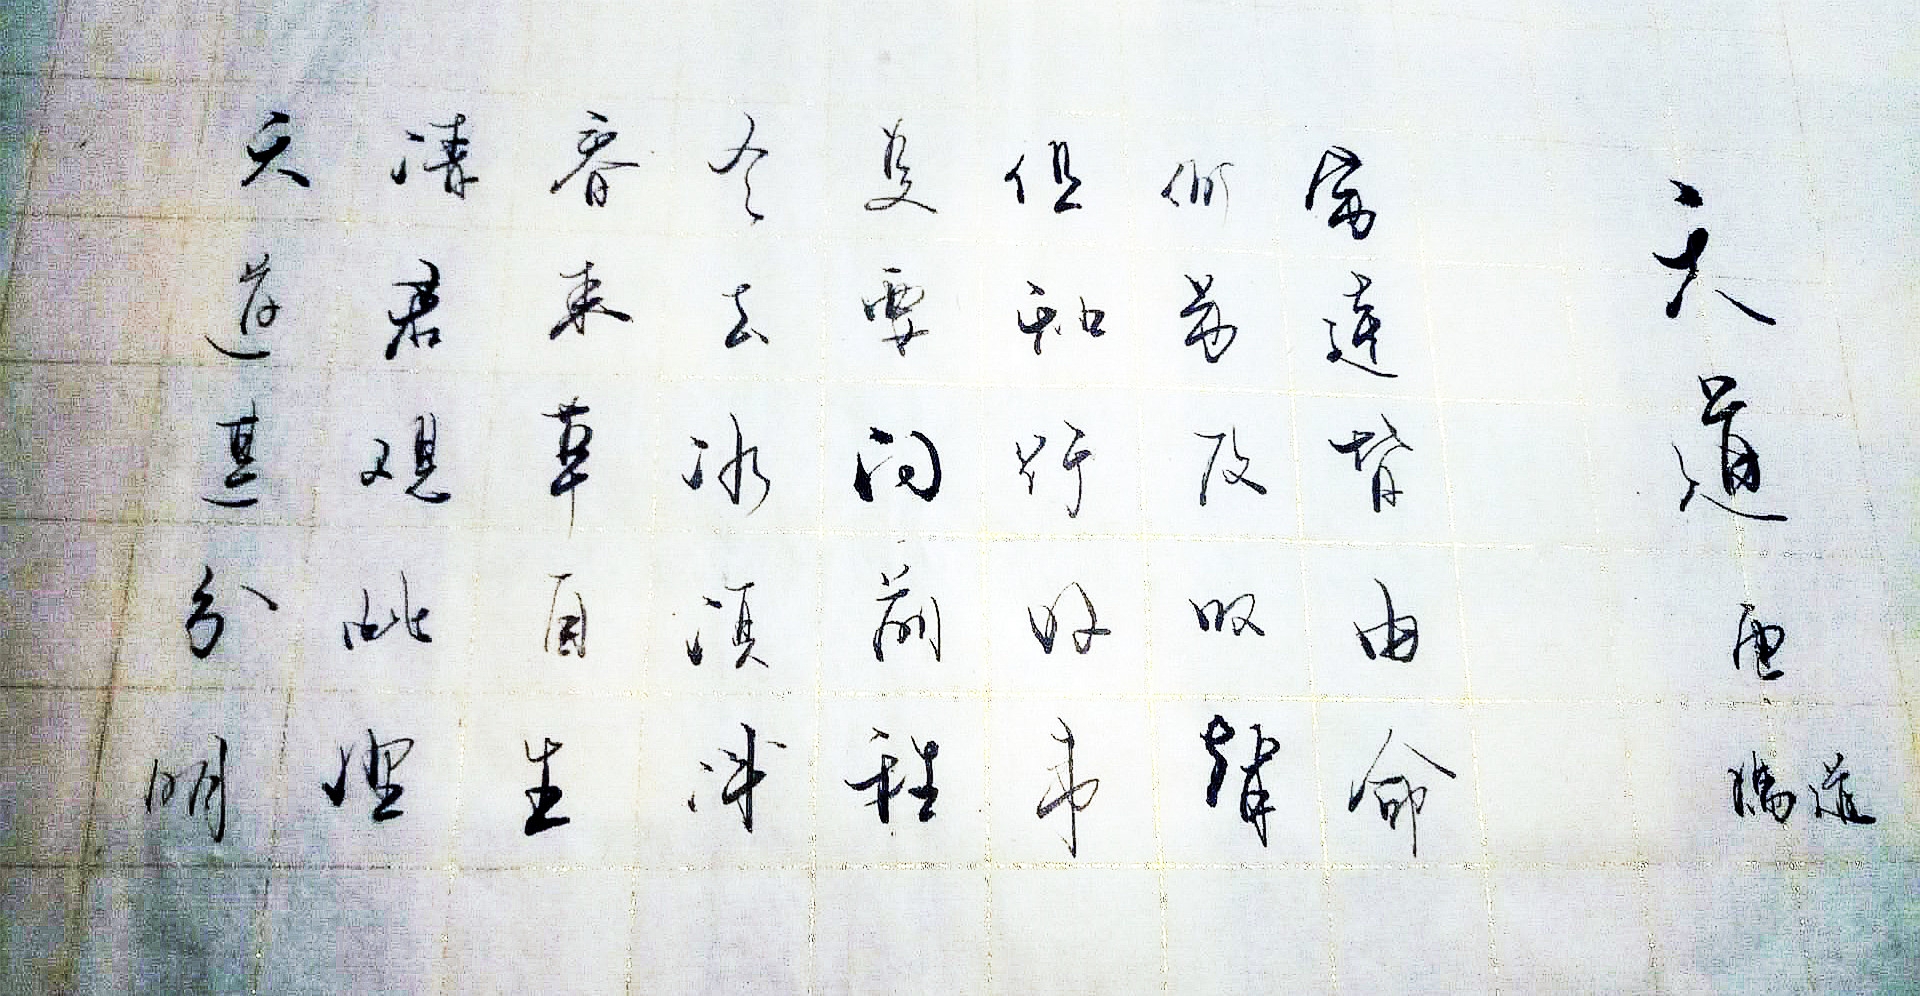 天道
冯道
穷达皆由命
何劳发叹声
但知行好事
莫要问前程
冬去冰须泮
春来草自生
请君观此理
天道甚分明